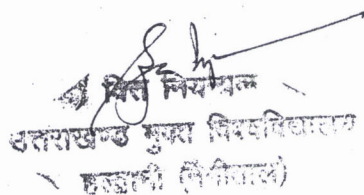 वित्त नियंत्रक
उत्तराखण्ड मुक्त विश्वविद्यालय
हल्द्वानी (नैनीताल)